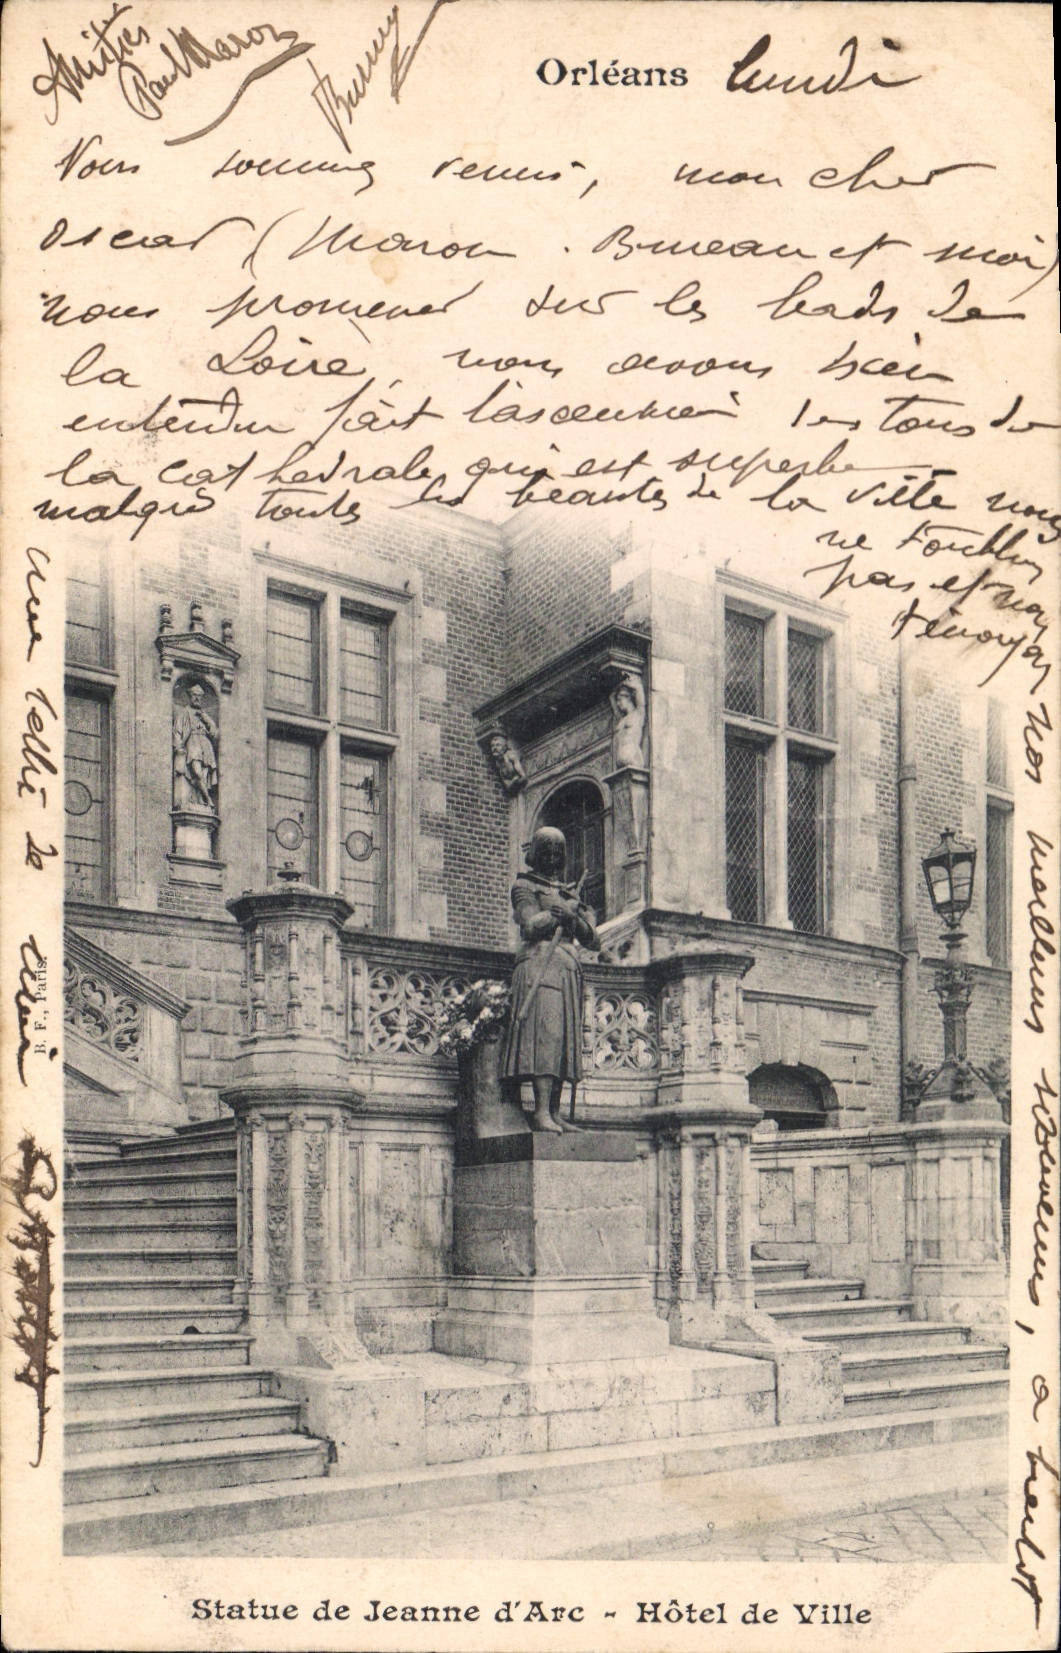 Orléans lundi
Amitiés
Paul Maron
Nous sommes venus, mon cher
Oscar (Maron. Bruneau et moi)
nous promener sur les bords de
la Loire, nous avons bien
entendu fait l'ascension des tours de
la Cathedrale qui est superbe
malgré toutes les beautés de la ville nous
ne t'oublions
pas et nous
t'envoyons
nos meilleurs souvenirs, a bientot
une
de
B. F., Paris.
Statue de Jeanne d'Arc - Hôtel de Ville